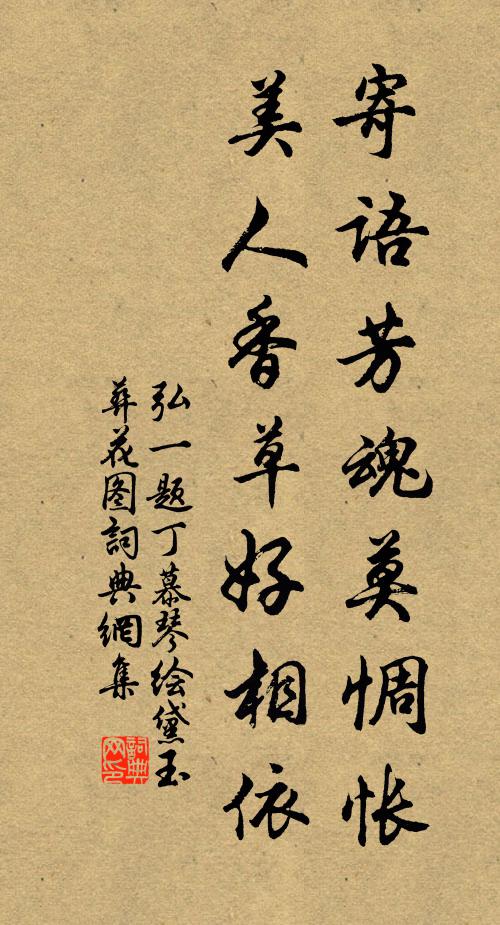 寄语芳魂莫惆怅
美人香草好相依
弘一题丁慕琴绘黛玉
葬花图詞典網集
詞典网印